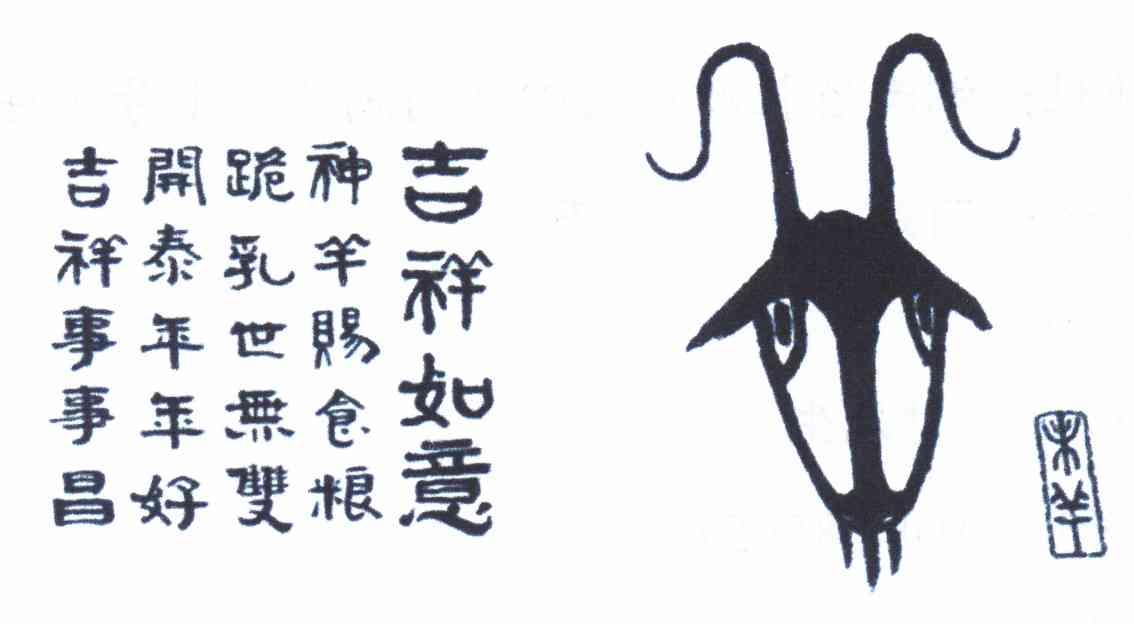 吉祥如意
神羊賜食粮
跪乳世無雙
開泰年年好
吉祥事事昌
未羊